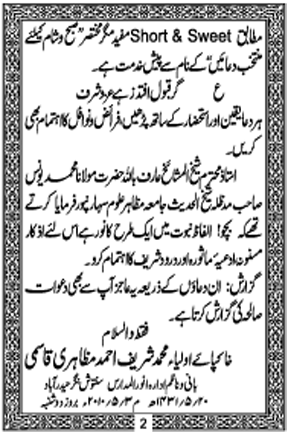 مطابق Short & Sweet مفید مگر مختصر ”صبح و شام کیلئے
منتخب دعائیں“ کے نام سے پیش خدمت ہے۔
ع گر قبول افتد زہے عز و شرف
ہر دعا یقین اور استحضار کے ساتھ پڑھیں فرائض و نوافل کا اہتمام بھی
کریں۔
استاذ محترم شیخ المشائخ عارف باللہ حضرت مولانا محمد یونس
صاحب مدظلہ شیخ الحدیث جامعہ مظاہر علوم سہارنپور فرمایا کرتے
تھے کہ بچو! الفاظ نبوت میں ایک طرح کا نور ہے اس لئے اذکار
مسنونہ ادعیہ ماثورہ اور درود شریف کا اہتمام کرو۔
گزارش: ان دعاؤں کے ذریعہ یہ عاجز آپ سے بھی دعوات
صالحہ کی گزارش کرتا ہے۔
فقط والسلام
خاکپائے اولیاء محمد شریف احمد مظاہری قاسمی
بانی و ناظم ادارہ انور المدارس سنتوش نگر حیدرآباد
۲۰/۵/۱۴۳۱ھ م ۳/۵/۲۰۱۰ء بروز دوشنبہ
2